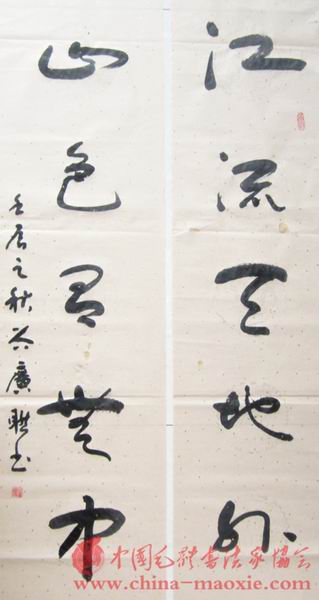 江流天地外
山色有無中
壬辰之秋
中国毛体书法家协会
www.china-maoxie.com